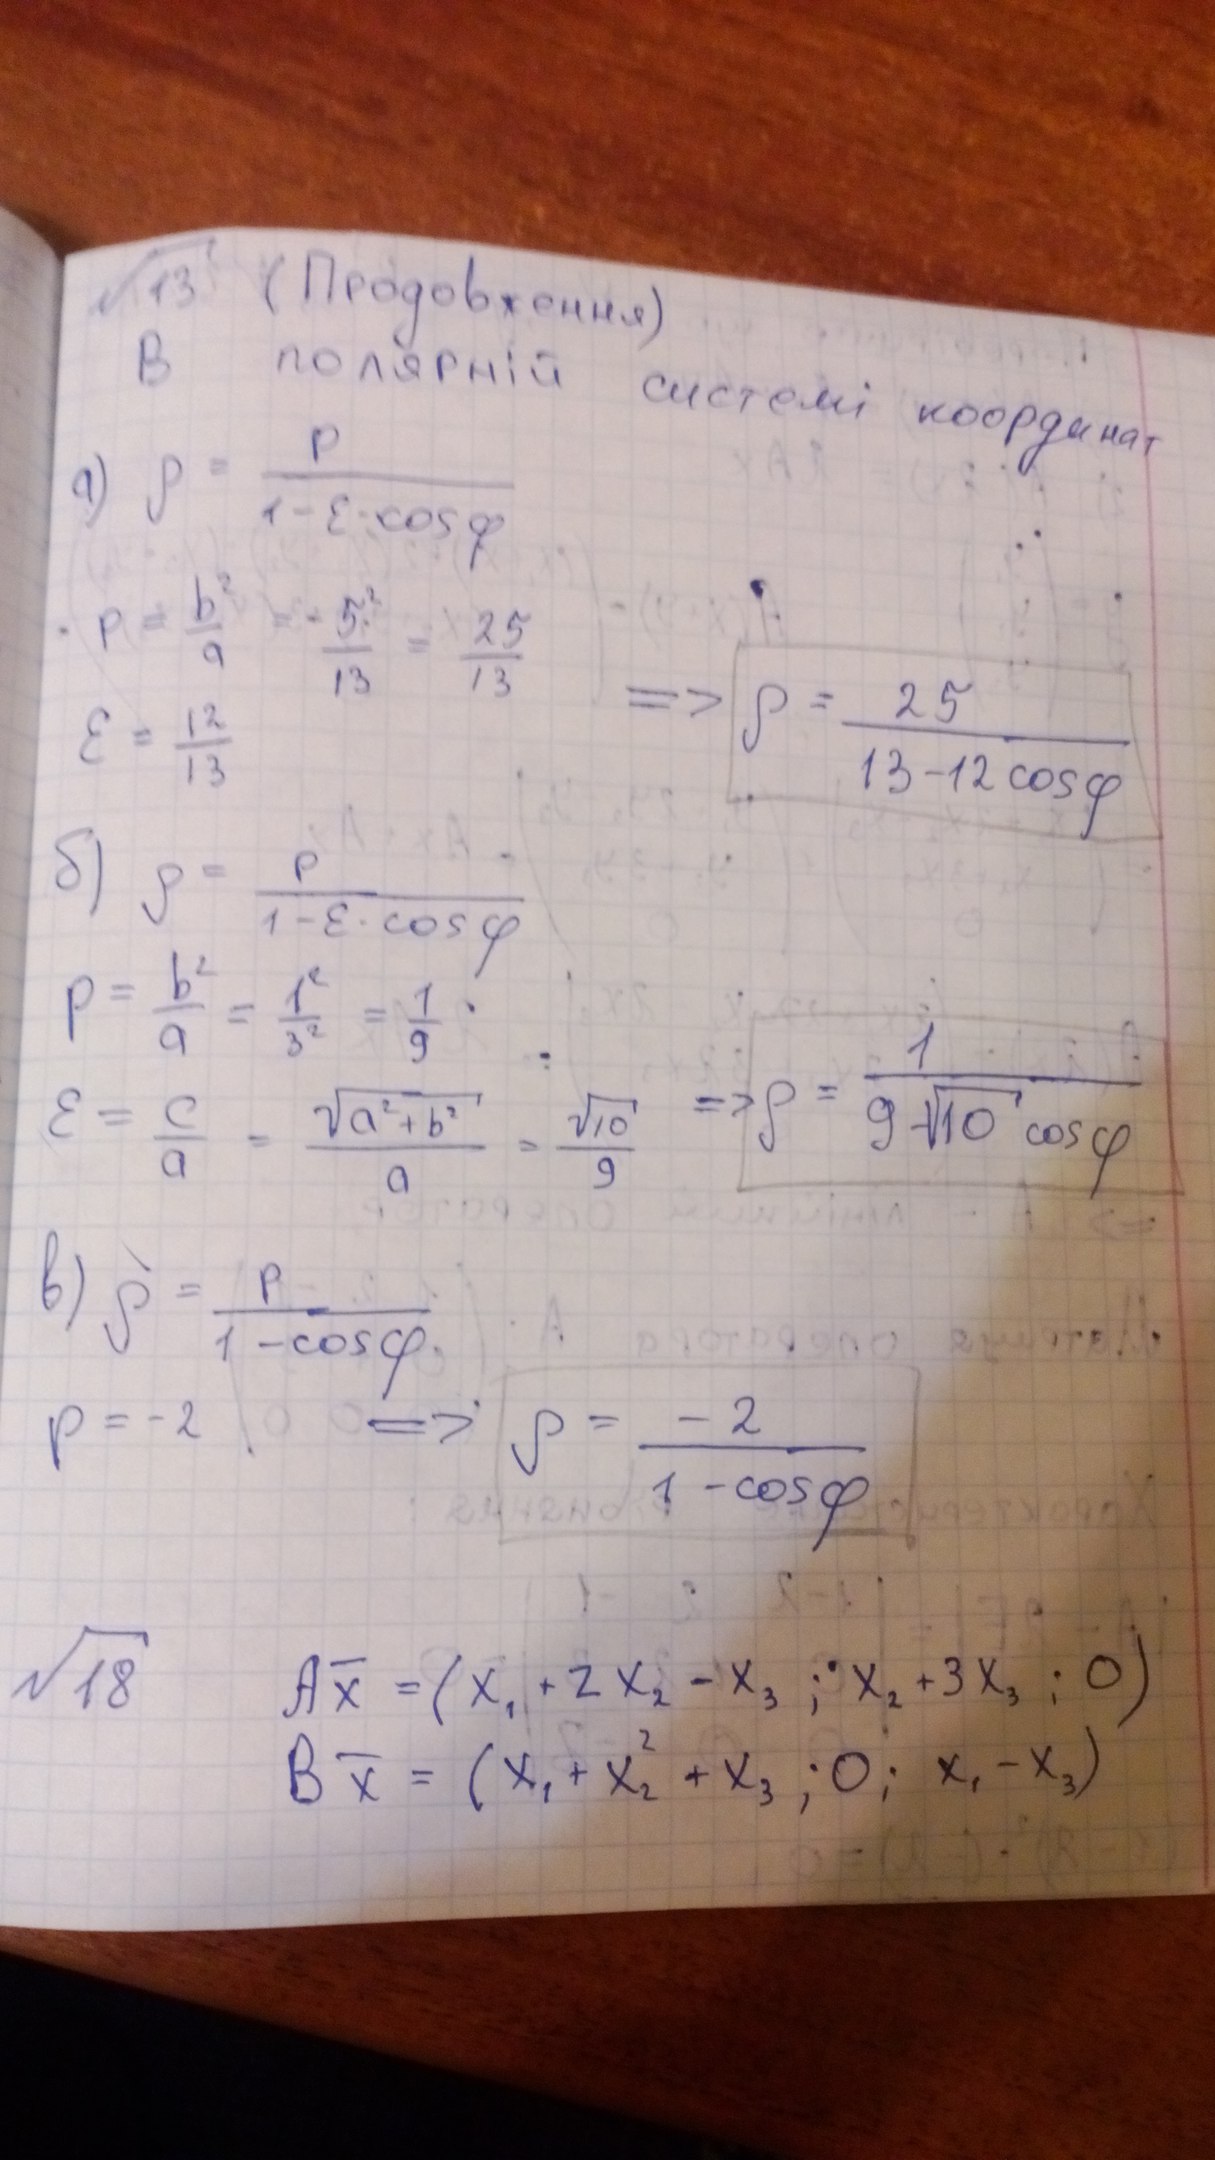 √13 (Продовження)
В полярній системі координат
а) ρ = p / (1 - ε · cos φ)
p = b² / a = 5² / 13 = 25 / 13
ε = 12 / 13
=> ρ = 25 / (13 - 12 cos φ)
б) ρ = p / (1 - ε · cos φ)
p = b² / a = 1² / 3² = 1 / 9
ε = c / a = √(a² + b²) / a = √10 / 9
=> ρ = 1 / (9 - √10 cos φ)
в) ρ = p / (1 - cos φ)
p = -2 => ρ = -2 / (1 - cos φ)
√18 A x̄ = (x₁ + 2x₂ - x₃ ; x₂ + 3x₃ ; 0)
B x̄ = (x₁ + x₂² + x₃ ; 0 ; x₁ - x₃)